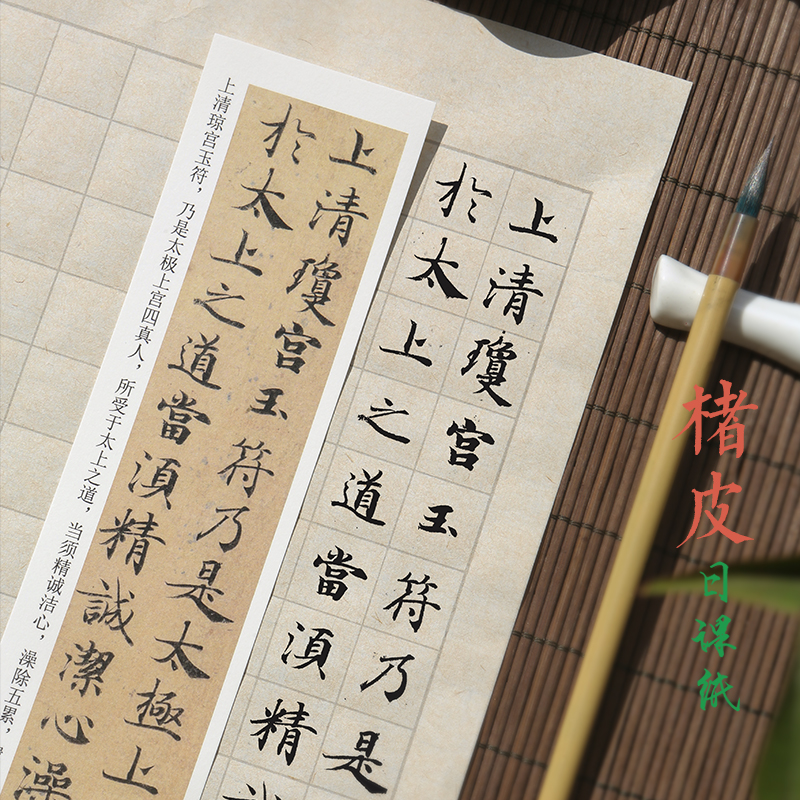 上清琼宫玉符，乃是太极上宫四真人，所受于太上之道，当须精诚洁心，澡除五累，
上清瓊宫玉符乃是太極上
於太上之道當湏精誠潔心澡
上清瓊宫玉符乃是
於太上之道當湏精誠
楮皮
日课纸